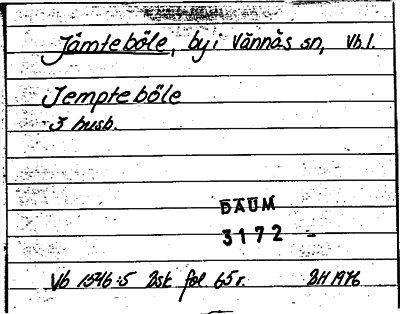 Jämteböle, by i Vännäs sn, Vb.l.
Jempteböle
3 husb.
DAUM
3172
Vb 1546:5 Dsk fol. 65r. BH 1976